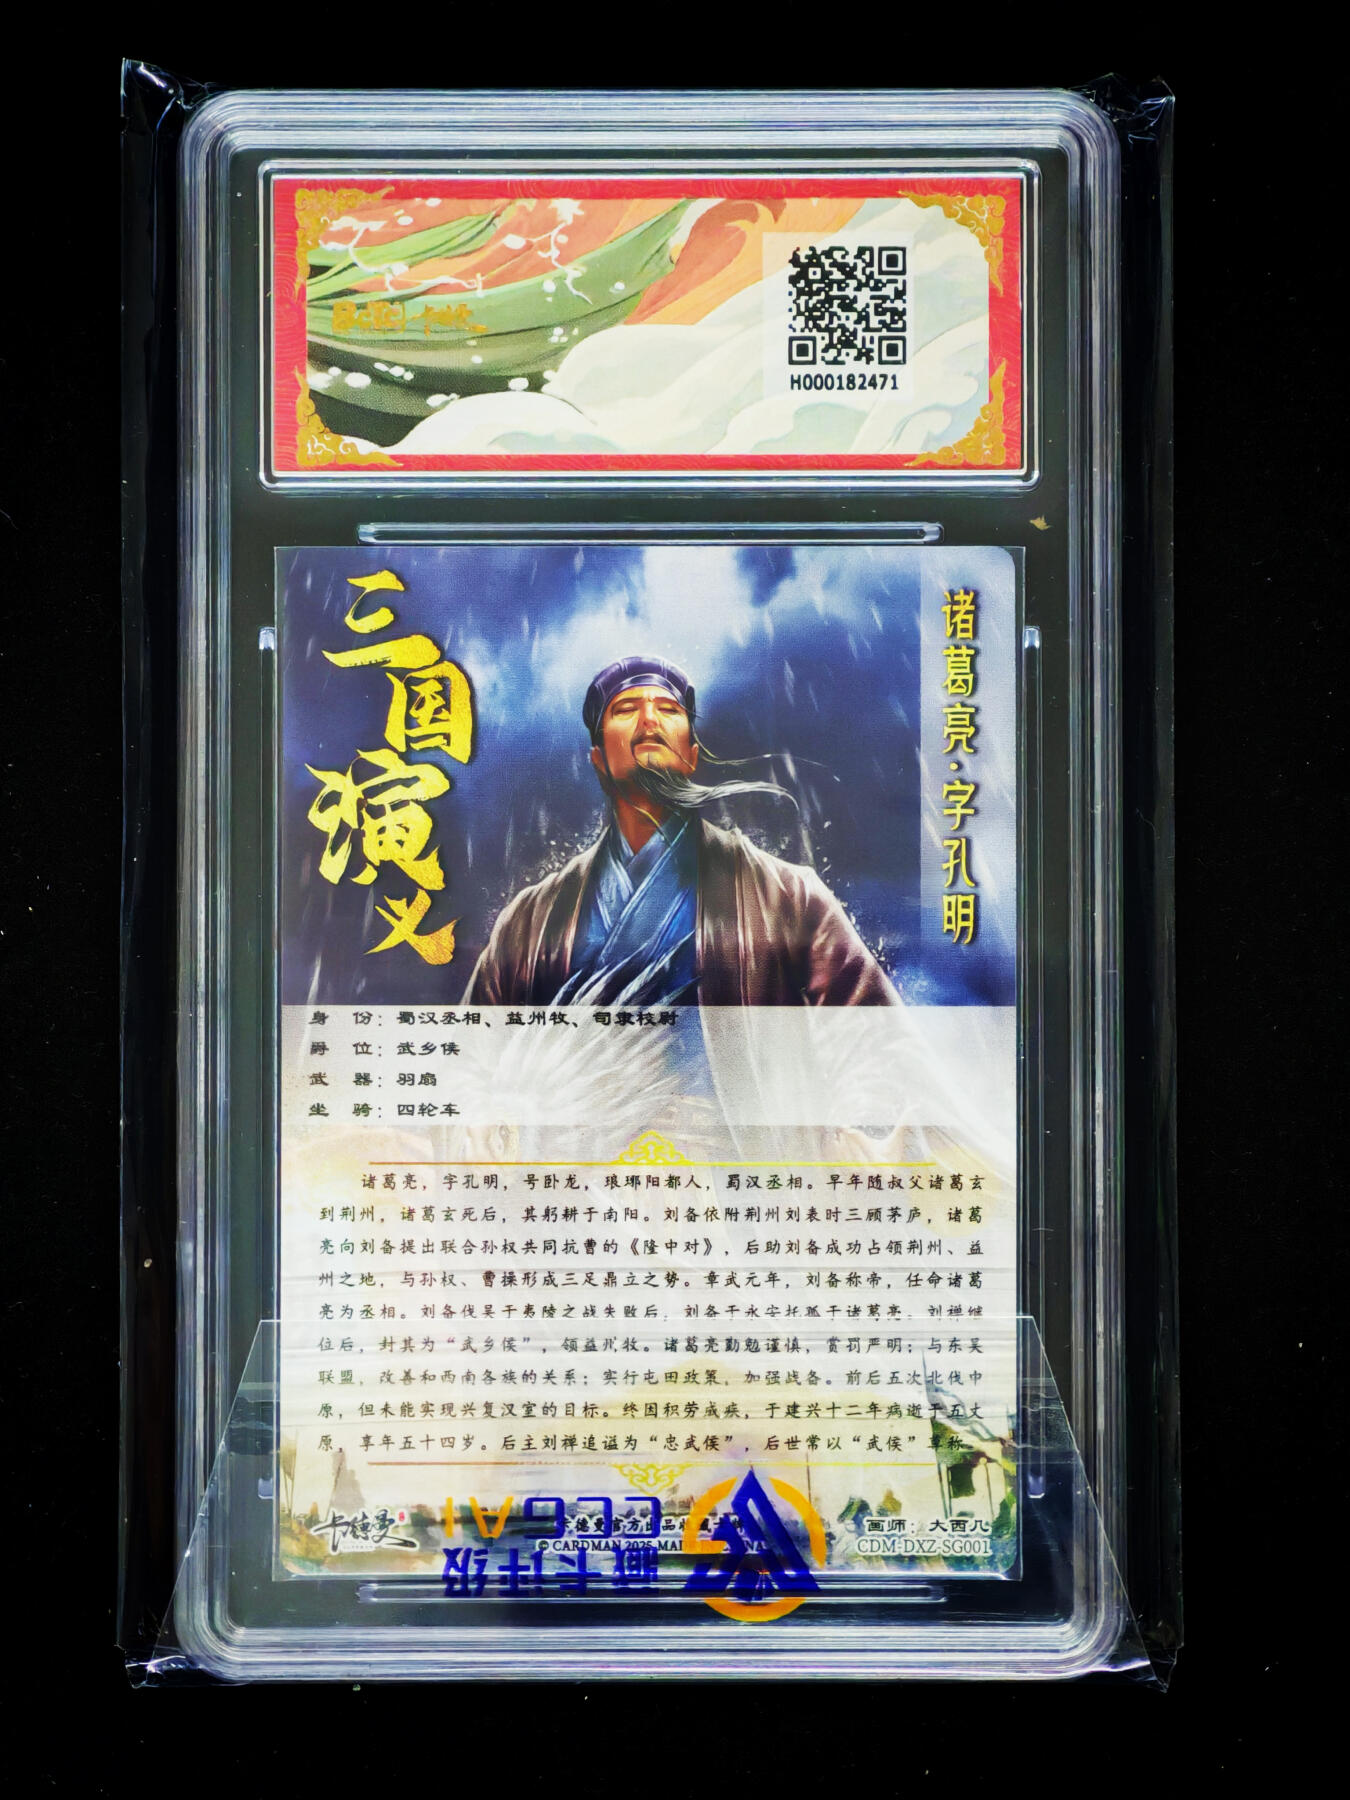 H000182471
三国演义
诸葛亮·字孔明
身 份：蜀汉丞相、益州牧、司隶校尉
爵 位：武乡侯
武 器：羽扇
坐 骑：四轮车
诸葛亮，字孔明，号卧龙，琅琊阳都人，蜀汉丞相。早年随叔父诸葛玄
到荆州，诸葛玄死后，其躬耕于南阳。刘备依附荆州刘表时三顾茅庐，诸葛
亮向刘备提出联合孙权共同抗曹的《隆中对》，后助刘备成功占领荆州、益
州之地，与孙权、曹操形成三足鼎立之势。章武元年，刘备称帝，任命诸葛
亮为丞相。刘备伐吴于夷陵之战失败后，刘备于永安托孤于诸葛亮。刘禅继
位后，封其为“武乡侯”，领益州牧。诸葛亮勤勉谨慎，赏罚严明；与东吴
联盟，改善和西南各族的关系；实行屯田政策，加强战备。前后五次北伐中
原，但未能实现兴复汉室的目标。终因积劳成疾，于建兴十二年病逝于五丈
原，享年五十四岁。后主刘禅追谥为“忠武侯”，后世常以“武侯”尊称。
卡德曼
卡德曼官方出品收藏卡牌
© CARDMAN 2025 MADE IN CHINA
画师：大西几
CDM-DXZ-SG001
CCGAI
藏卡评级